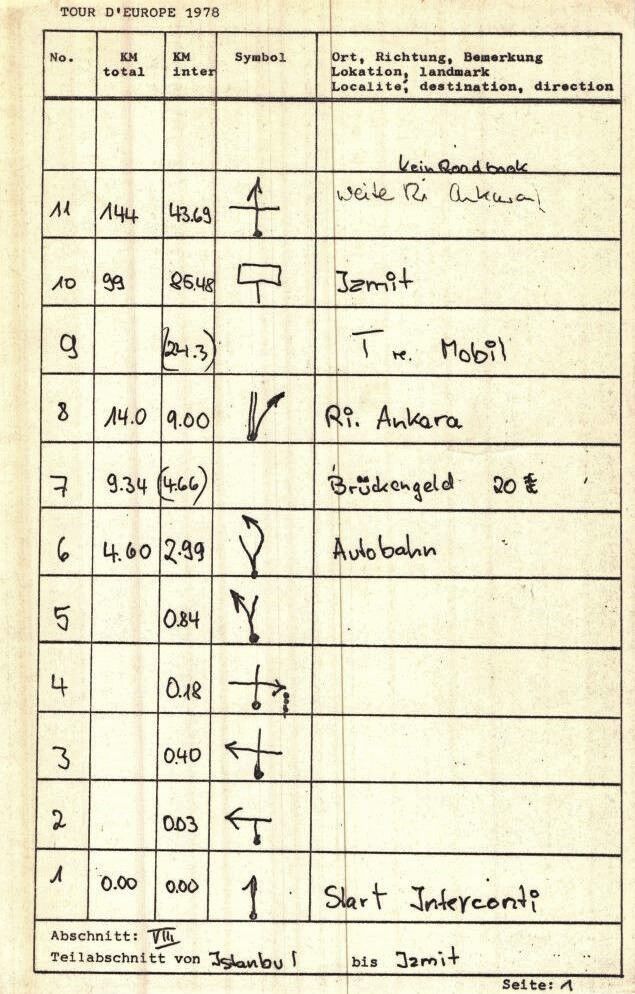 TOUR D'EUROPE 1978
No. KM total KM inter Symbol Ort, Richtung, Bemerkung
Lokation, landmark
Localité, destination, direction
kein Roadbook
11 144 43.69 weite Ri Ankara
10 99 85.48 Izmit
9 (24.3) T re. Mobil
8 14.0 9.00 Ri. Ankara
7 9.34 (4.66) Brückengeld 20
6 4.60 2.99 Autobahn
5 0.84
4 0.18
3 0.40
2 0.03
1 0.00 0.00 Start Interconti
Abschnitt: VIII
Teilabschnitt von Istanbul bis Izmit
Seite: 1